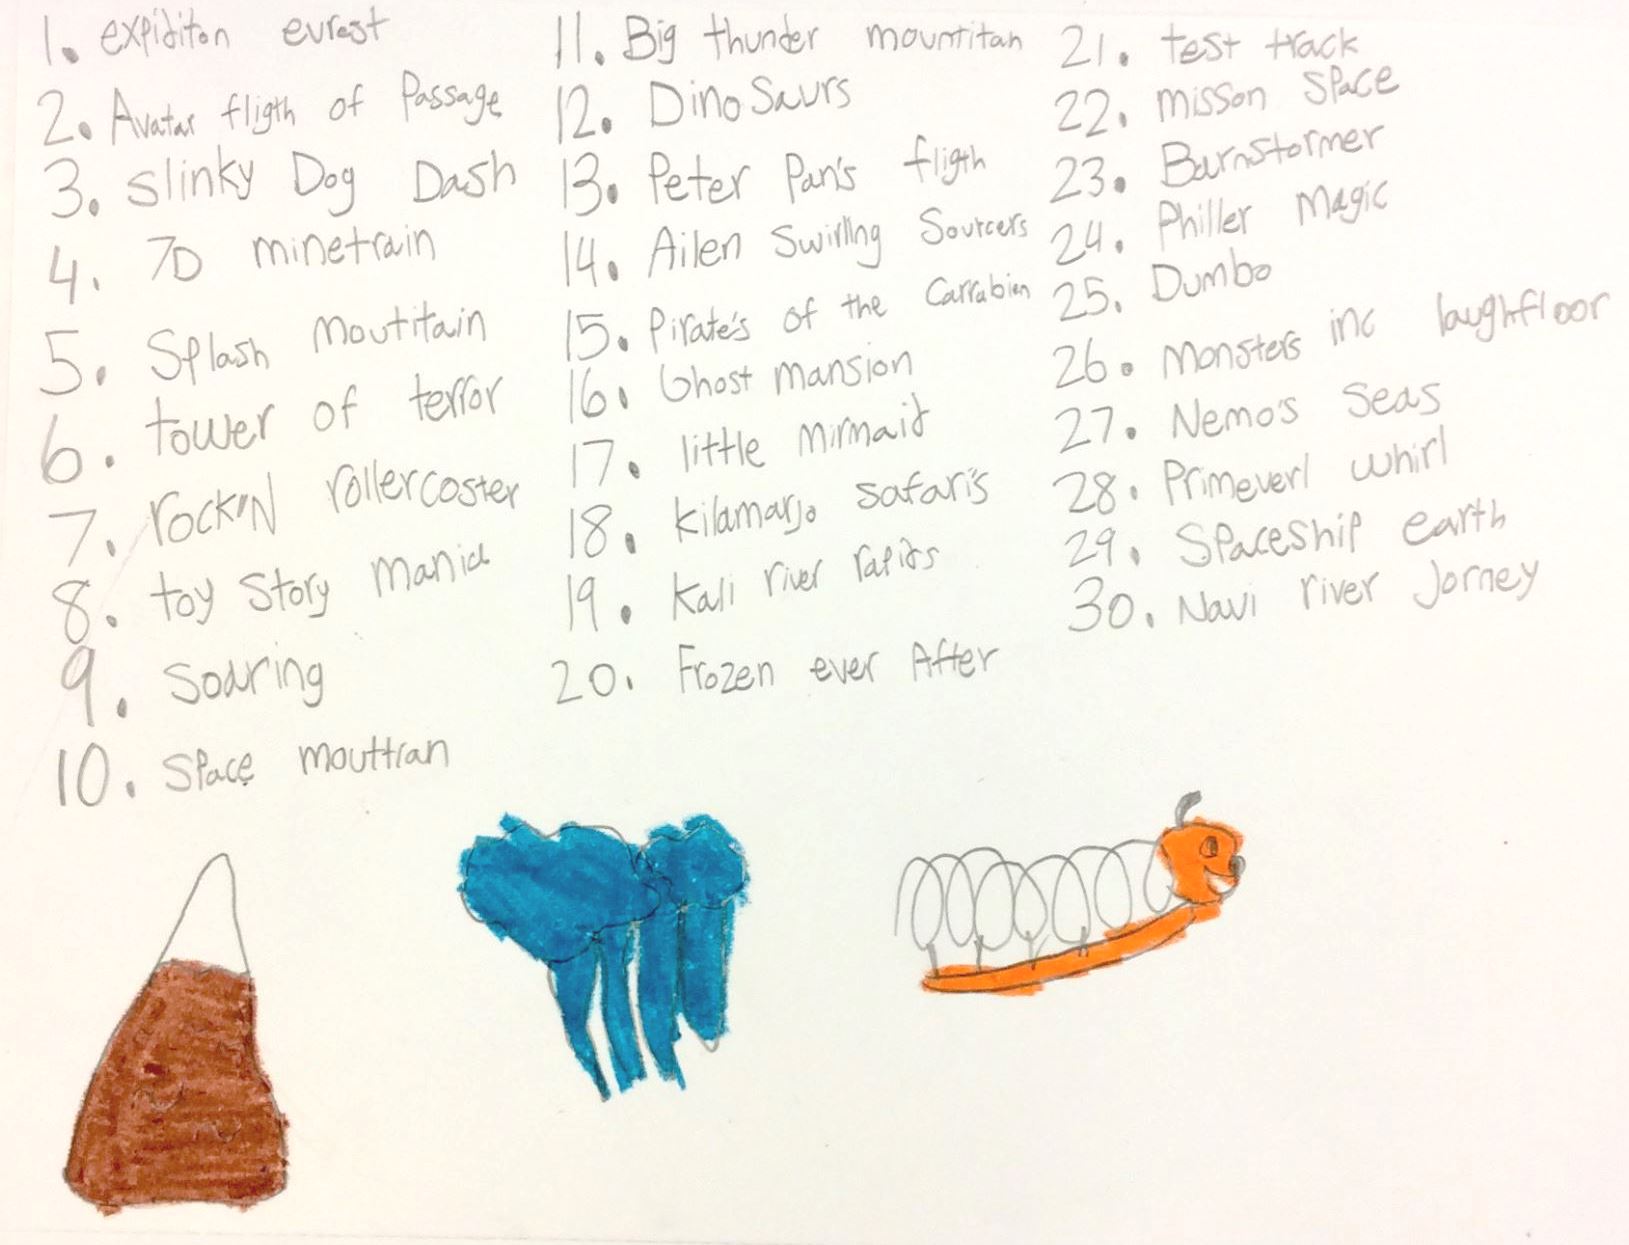 1. expiditon evrest
2. Avatar fligth of Passage
3. Slinky Dog Dash
4. 7D minetrain
5. Splash moutitain
6. tower of terror
7. rock'N rollercoster
8. toy Story mania
9. Soaring
10. Space mouttian
11. Big thunder mountitan
12. DinoSaurs
13. Peter Pan's fligth
14. Ailen Swirling Sourcers
15. Pirate's of the Carrabien
16. Ghost mansion
17. little mirmaid
18. kilamarjo safari's
19. kali river rapids
20. Frozen ever After
21. test track
22. misson Space
23. Barnstormer
24. Philler Magic
25. Dumbo
26. monsters inc laughfloor
27. Nemo's seas
28. Primeverl whirl
29. Spaceship earth
30. Navi river Jorney